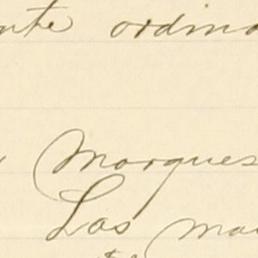 ordina
Marques
Las ma